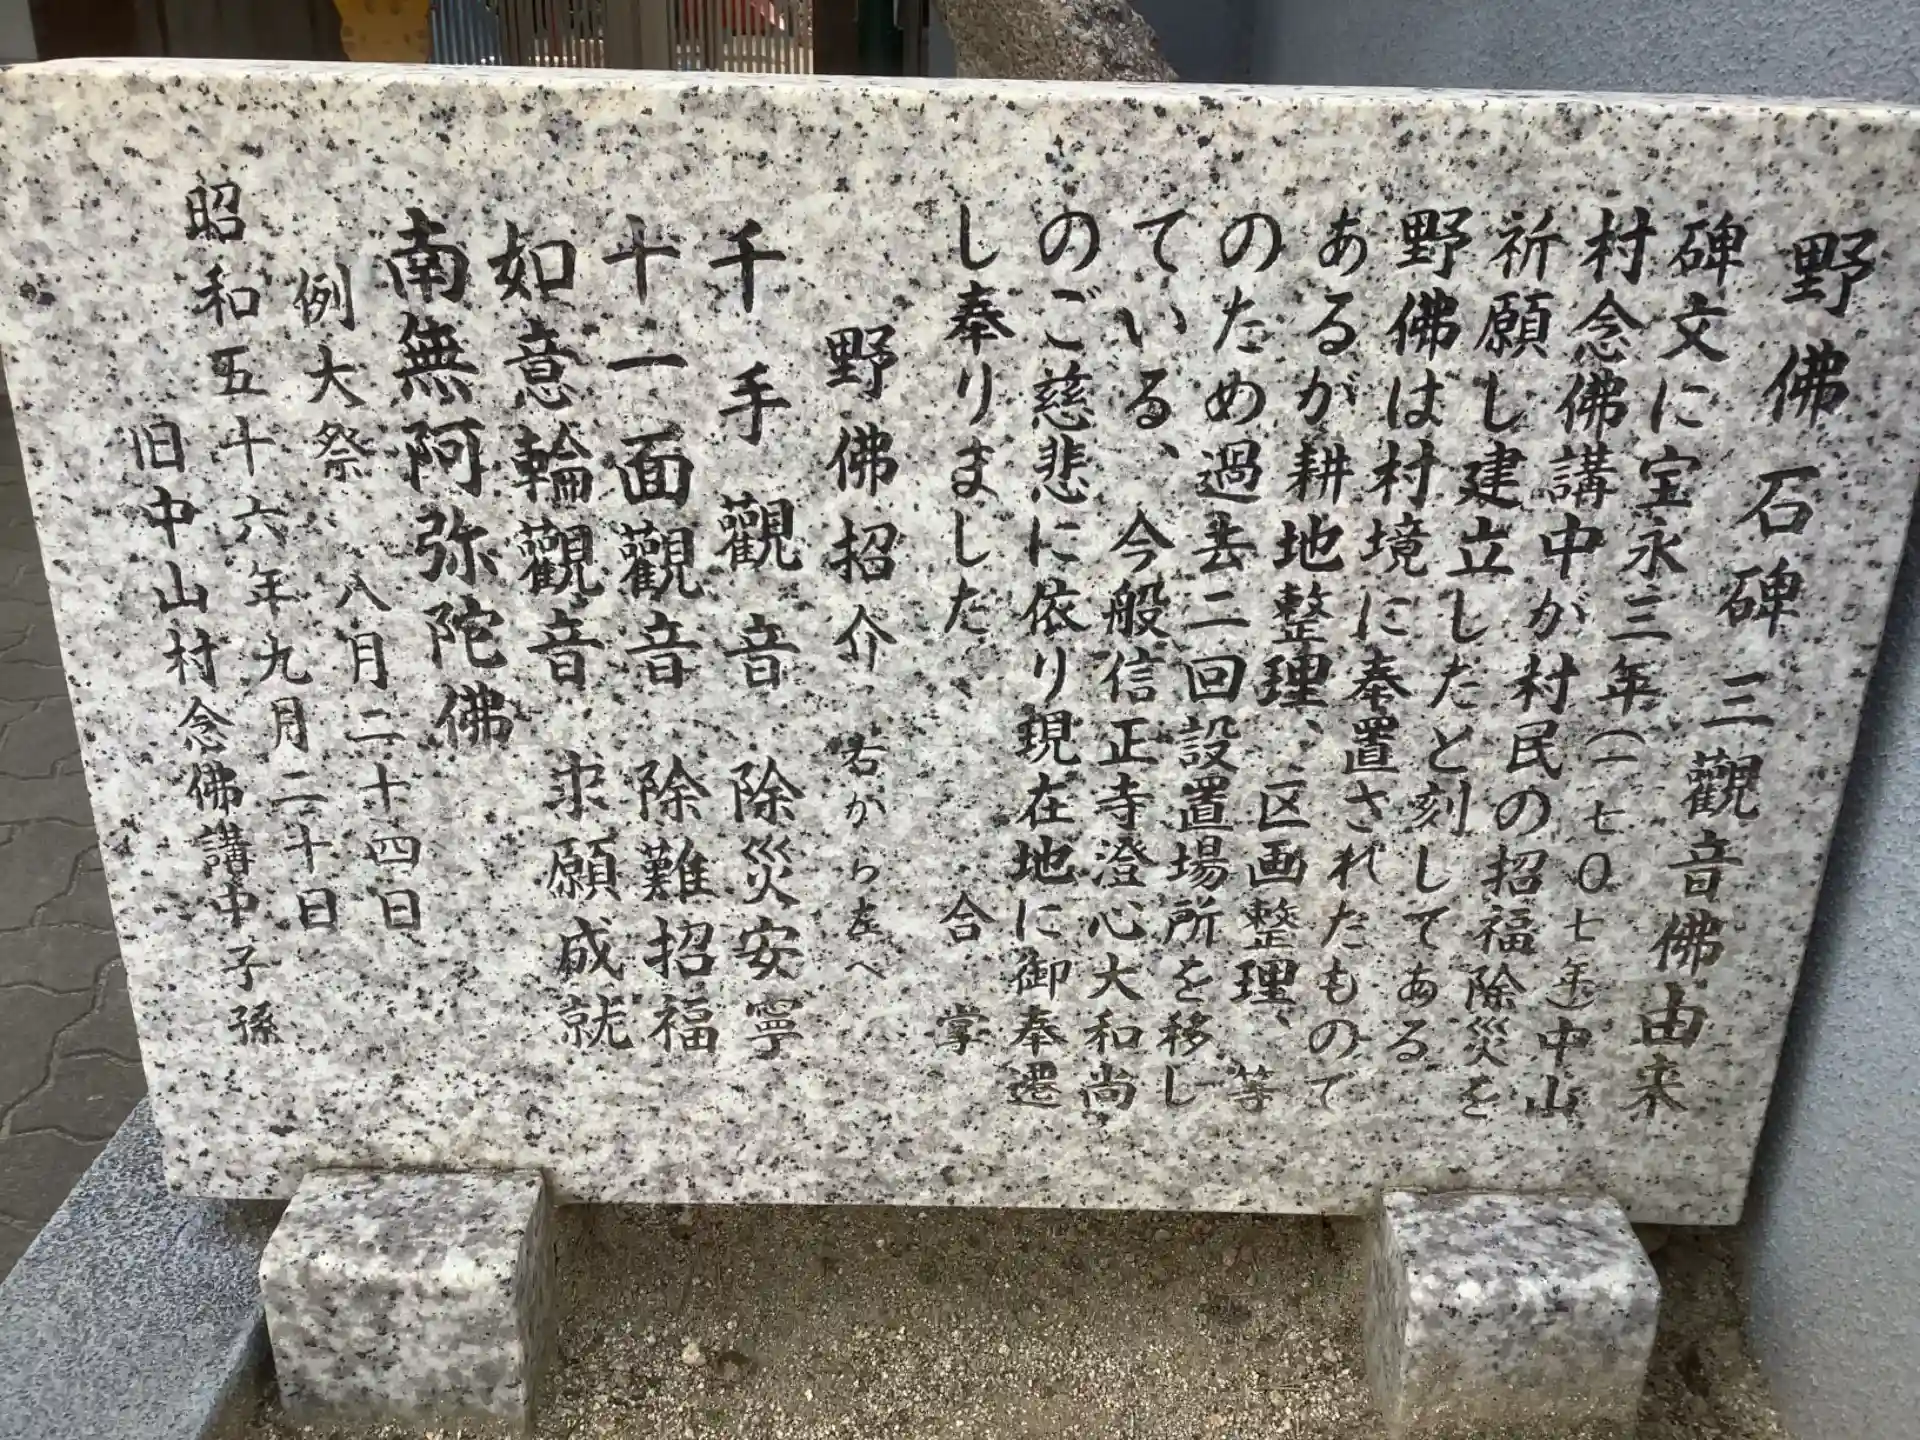 野佛石碑三觀音佛由来
碑文に宝永三年(一七〇七年)中山
村念佛講中が村民の招福除災を
祈願し建立したと刻してある
野佛は村境に奉置されたもので
あるが耕地整理、区画整理、等
のため過去二回設置場所を移し
ている、今般信正寺澄心大和尚
のご慈悲に依り現在地に御奉遷
し奉りました、合掌
野佛招介 右から左へ
千手觀音 除災安寧
十一面觀音 除難招福
如意輪觀音 求願成就
南無阿弥陀佛
例大祭 八月二十四日
昭和五十六年九月二十日
旧中山村念佛講中子孫